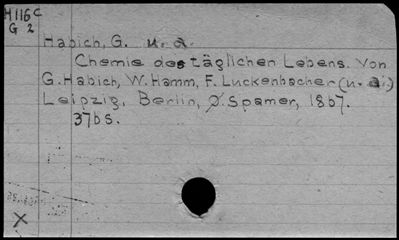 H116C
G 2
Habich, G. u. a.
Chemie des täglichen Lebens. Von
G. Habich, W. Hamm, F. Luckenbacher (u. a.)
Leipzig, Berlin, O. Spamer, 1867.
37bs.
X